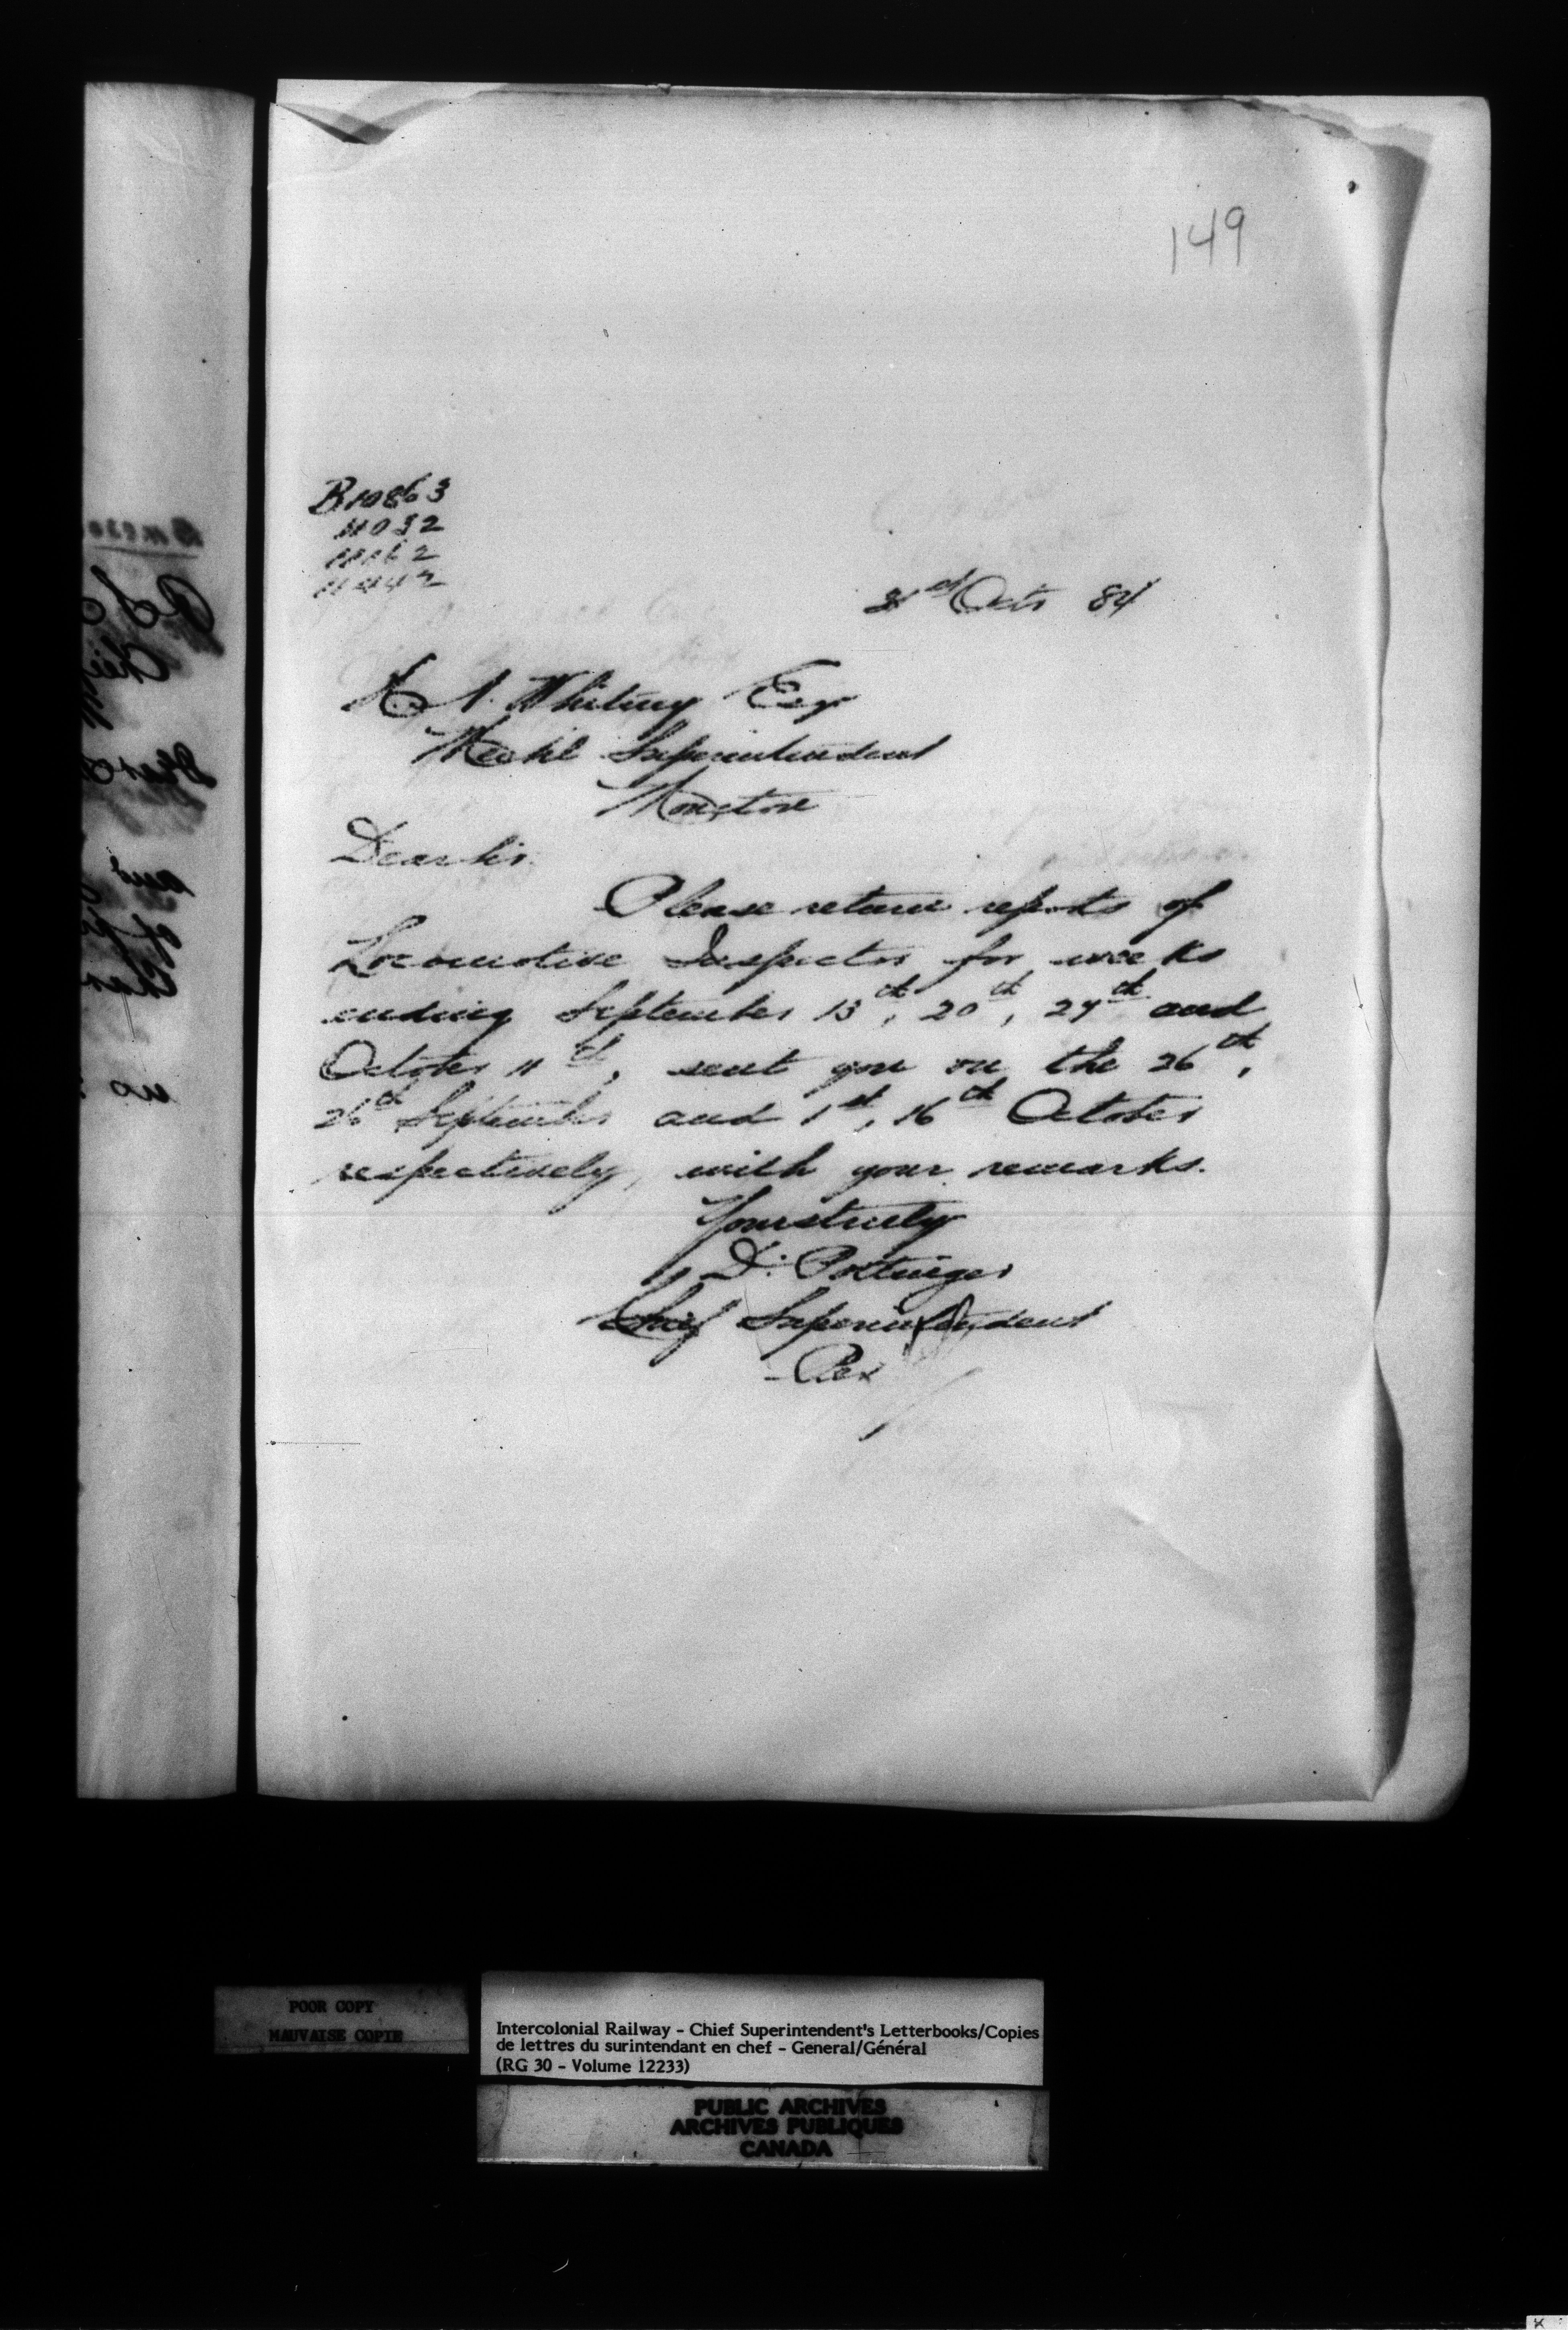 149
B10863
11032
11162
11442
31st Octr 84
H. A. Whitney Esqr
Mechl Superintendent
Moncton
Dear Sir
Please return reports of
Locomotive Inspector for weeks
ending September 13th, 20th, 27th and
October 11th, sent you on the 26th,
26th September and 1st, 16th October
respectively, with your remarks.
Yours truly
D. Pottinger
Chief Superintendent
POOR COPY
MAUVAISE COPIE
Intercolonial Railway - Chief Superintendent's Letterbooks/Copies
de lettres du surintendant en chef - General/Général
(RG 30 - Volume 12233)
PUBLIC ARCHIVES
ARCHIVES PUBLIQUES
CANADA